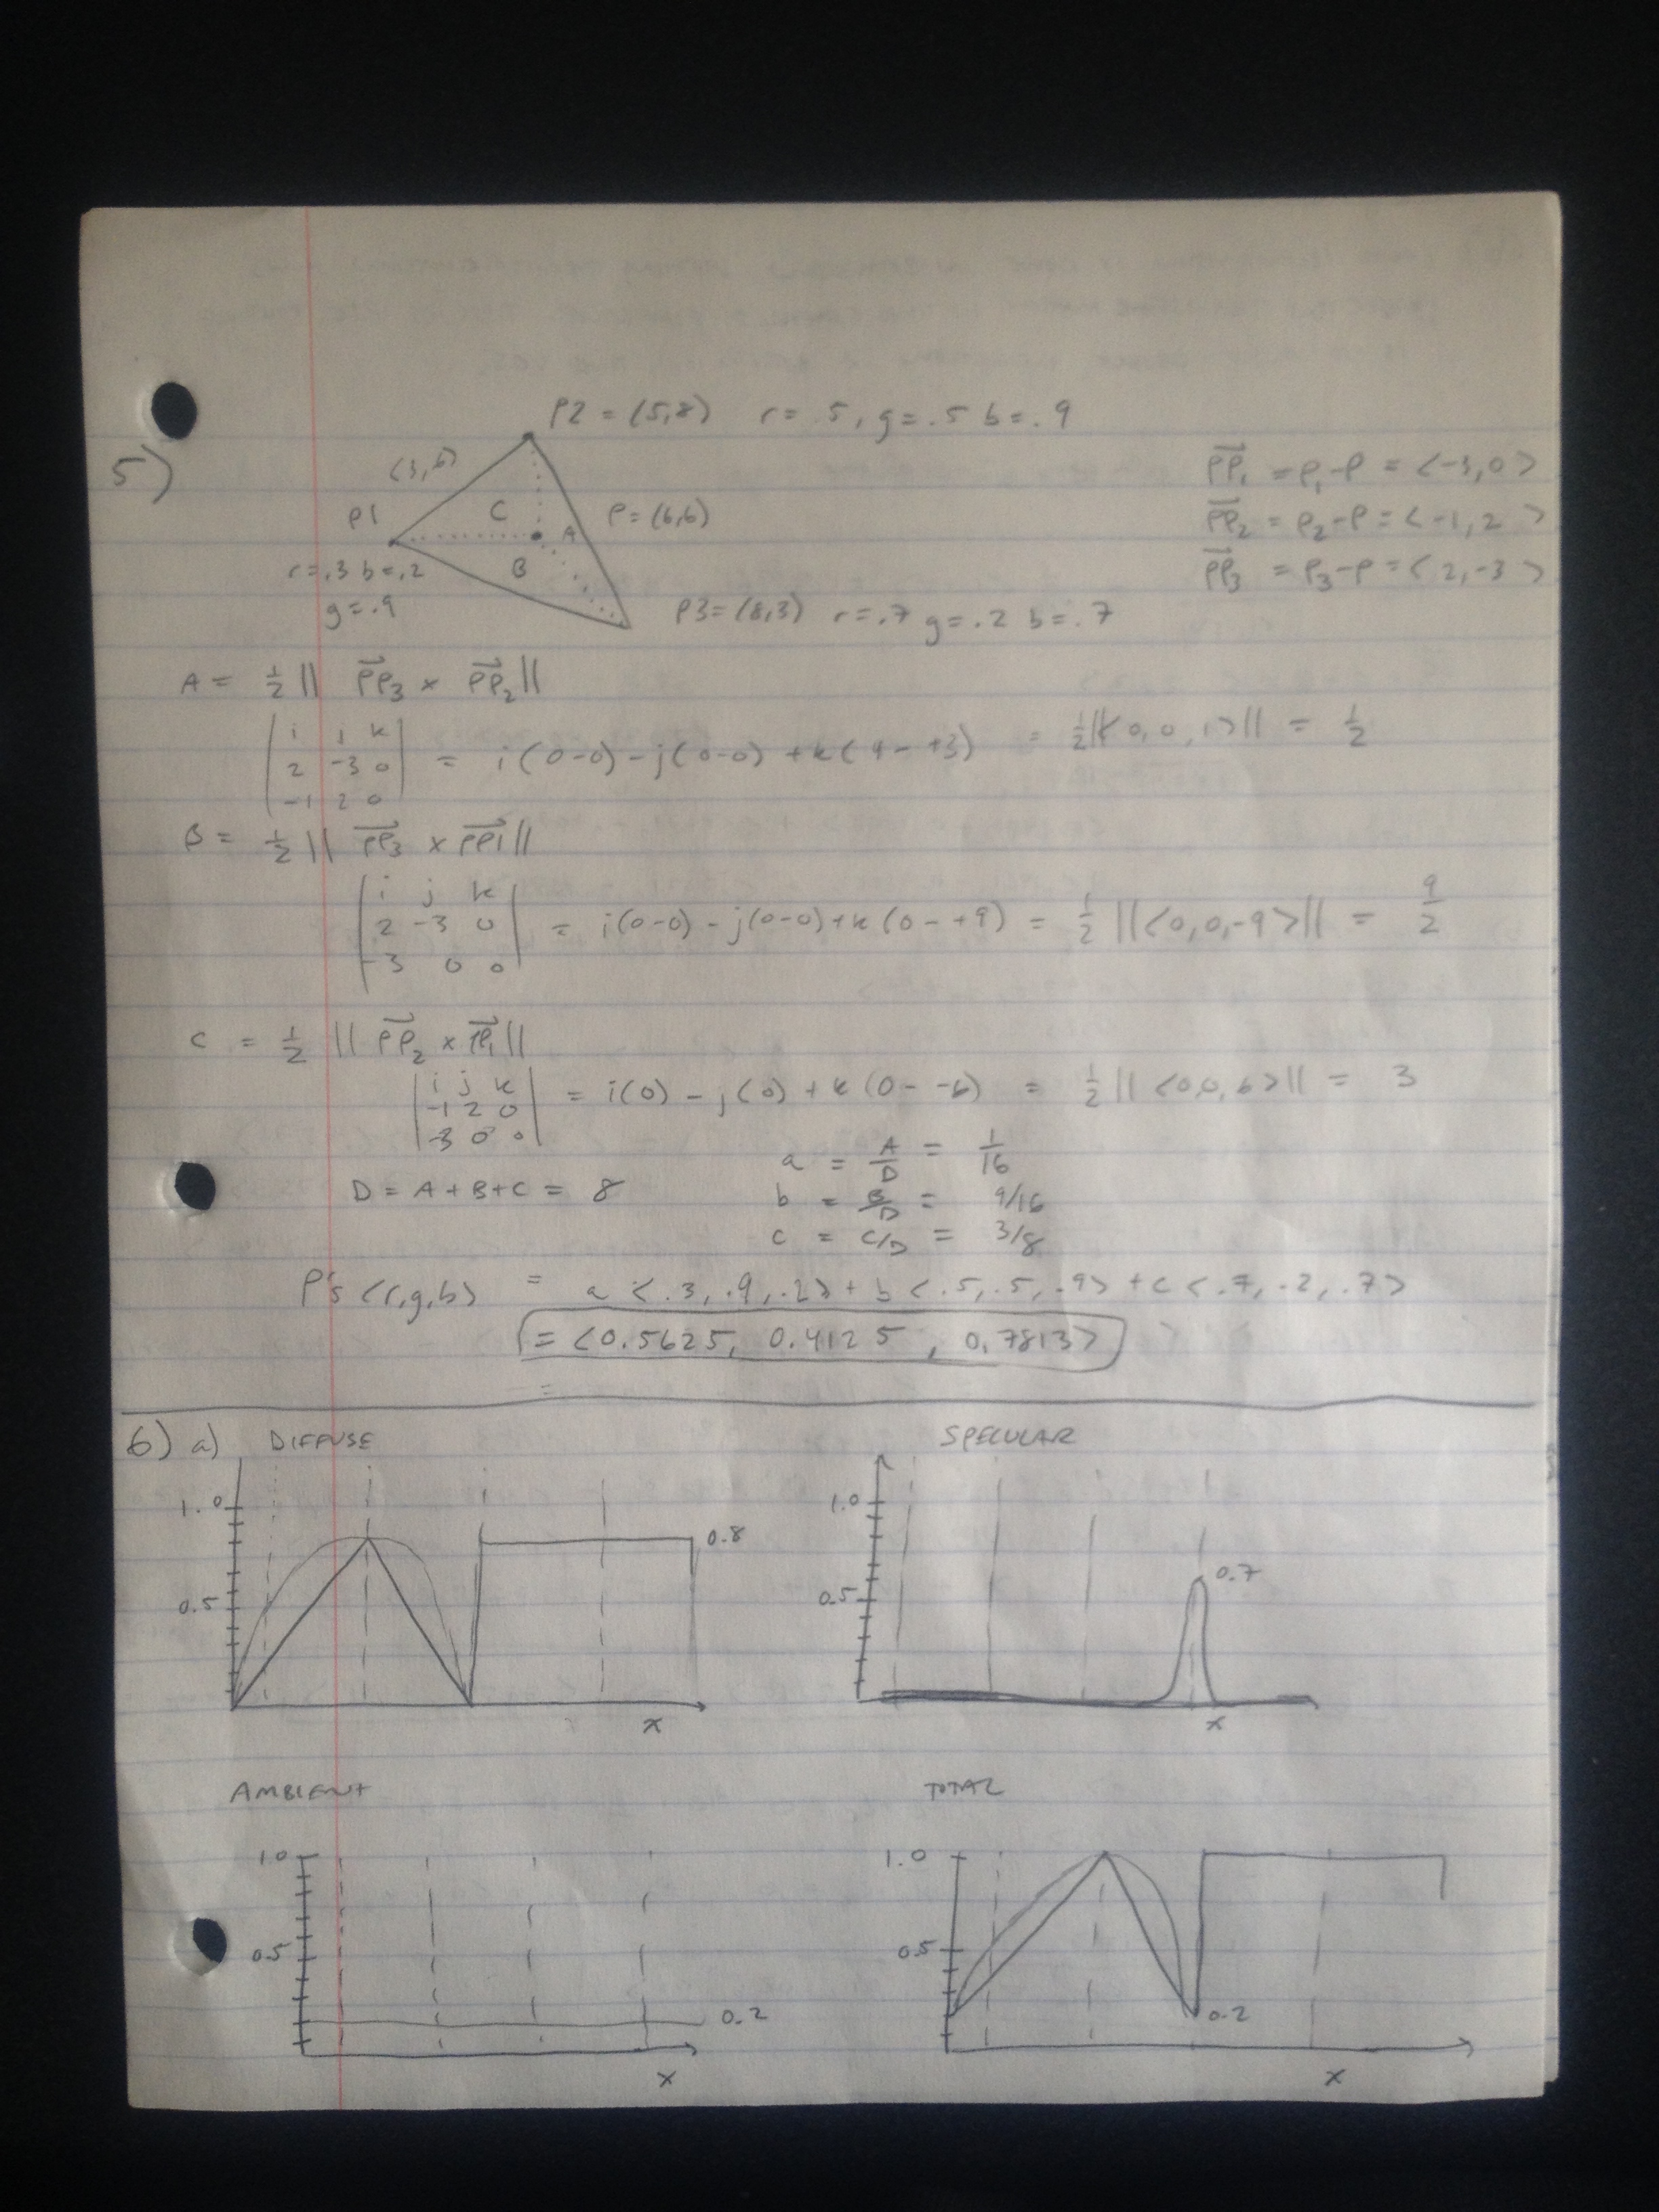 5)
P2 = (5,8) r = .5, g = .5 b = .9
(3,6)
P1
C
A
B
P = (6,6)
r = .3 b = .2
g = .9
P3 = (8,3) r = .7 g = .2 b = .7
PP₁ = P₁-P = <-3,0>
PP₂ = P₂-P = <-1,2>
PP₃ = P₃-P = <2,-3>
A = ½ || PP₃ × PP₂ ||
| i j k |
| 2 -3 0 | = i(0-0) - j(0-0) + k(4 - +3) = ½||<0,0,1>|| = ½
| -1 2 0 |
B = ½ || PP₃ × PP1 ||
| i j k |
| 2 -3 0 | = i(0-0) - j(0-0) + k(0 - +9) = ½ ||<0,0,-9>|| = 9/2
| -3 0 0 |
C = ½ || PP₂ × PP₁ ||
| i j k |
| -1 2 0 | = i(0) - j(0) + k(0 - -6) = ½ || <0,0,6> || = 3
| -3 0 0 |
D = A + B + C = 8
a = A/D = 1/16
b = B/D = 9/16
c = C/D = 3/8
P's <r,g,b> = a <.3, .9, .2> + b <.5, .5, .9> + c <.7, .2, .7>
= <0.5625, 0.4125, 0.7813>
=
6) a) DIFFUSE
1.0
0.5
0.8
x
SPECULAR
1.0
0.5
0.7
x
AMBIENT
1.0
0.5
0.2
x
TOTAL
1.0
0.5
0.2
x